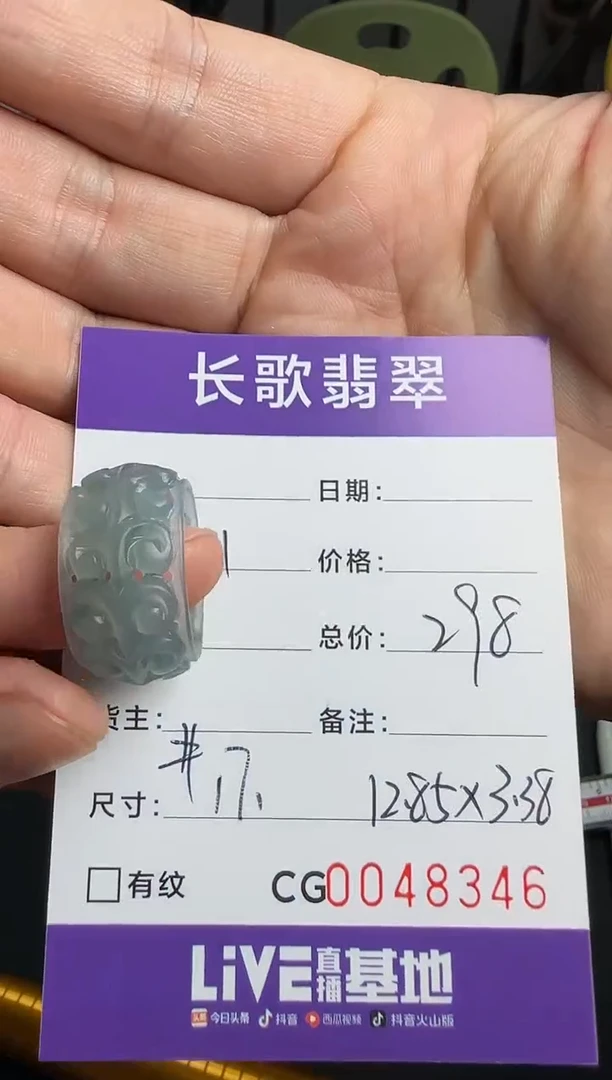 长歌翡翠
日期:
1 价格:
总价: 298
货主: 备注:
#17.
尺寸: 12.85×3.38
有纹 CG0048346
LiVE直播基地
头条 今日头条 抖音 西瓜视频 抖音火山版